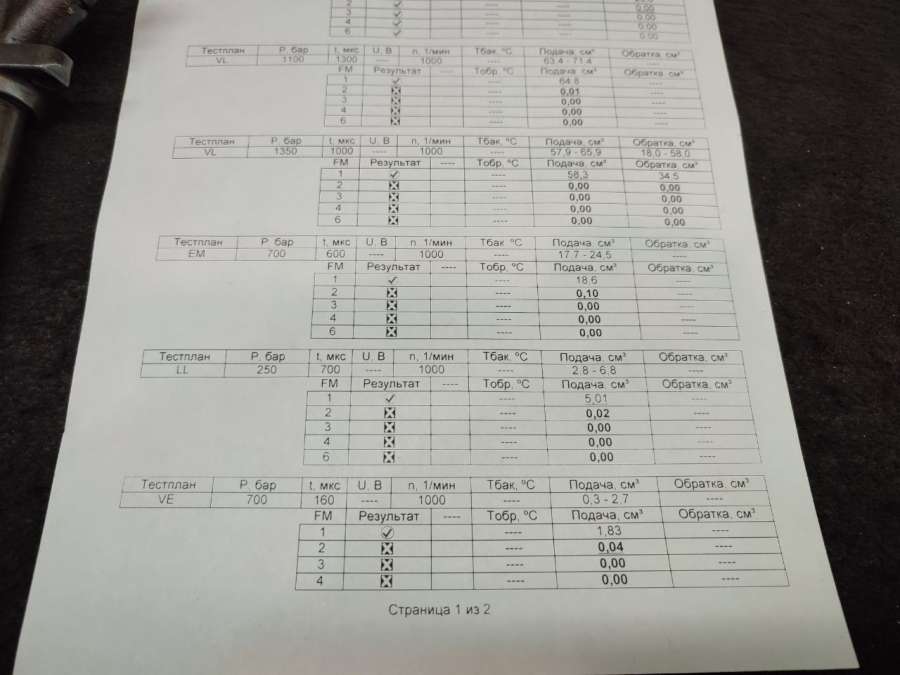 2 ✓ ---- ----
3 ✓ ---- ---- 0,00
4 ✓ ---- ---- 0.00
6 ✓ ---- ---- 0.00
Тестплан P, бар t, мкс U, В n, 1/мин Тбак, ºC Подача, см³ Обратка, см³
VL 1100 1300 ---- 1000 ---- 63.4 - 71.4 ----
FM Результат ---- Тобр, ºC Подача, см³ Обратка, см³
1 ✓ ---- 64.8 ----
2 ☒ ---- 0,01 ----
3 ☒ ---- 0,00 ----
4 ☒ ---- 0,00 ----
6 ☒ ---- 0,00 ----
Тестплан P, бар t, мкс U, В n, 1/мин Тбак, ºC Подача, см³ Обратка, см³
VL 1350 1000 ---- 1000 ---- 57,9 - 65,9 18,0 - 58,0
FM Результат ---- Тобр, ºC Подача, см³ Обратка, см³
1 ✓ ---- 58,3 34,5
2 ☒ ---- 0,00 0,00
3 ☒ ---- 0,00 0,00
4 ☒ ---- 0,00 0,00
6 ☒ ---- 0,00 0,00
Тестплан P, бар t, мкс U, В n, 1/мин Тбак ºC Подача, см³ Обратка, см³
EM 700 600 ---- 1000 ---- 17.7 - 24,5 ----
FM Результат ---- Тобр, ºC Подача, см³ Обратка, см³
1 ✓ ---- 18,6 ----
2 ☒ ---- 0,10 ----
3 ☒ ---- 0,00 ----
4 ☒ ---- 0,00 ----
6 ☒ ---- 0,00 ----
Тестплан P, бар t, мкс U, В n, 1/мин Тбак, ºC Подача, см³ Обратка, см³
LL 250 700 ---- 1000 ---- 2.8 - 6.8 ----
FM Результат ---- Тобр, ºC Подача, см³ Обратка, см³
1 ✓ ---- 5,01 ----
2 ☒ ---- 0,02 ----
3 ☒ ---- 0,00 ----
4 ☒ ---- 0,00 ----
6 ☒ ---- 0,00 ----
Тестплан P, бар t, мкс U, В n, 1/мин Тбак, ºC Подача, см³ Обратка, см³
VE 700 160 ---- 1000 ---- 0,3 - 2,7 ----
FM Результат ---- Тобр, ºC Подача, см³ Обратка, см³
1 ✓ ---- 1,83 ----
2 ☒ ---- 0,04 ----
3 ☒ ---- 0,00 ----
4 ☒ ---- 0,00 ----
Страница 1 из 2